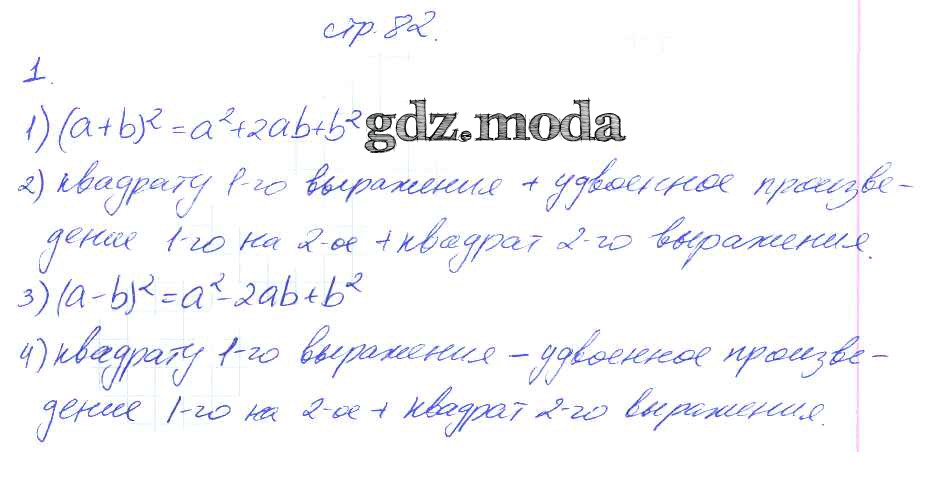 стр. 82.
1.
1) (a+b)² = a²+2ab+b² gdz.moda
2) квадрату 1-го выражения + удвоенное произве-
дение 1-го на 2-ое + квадрат 2-го выражения.
3) (a-b)² = a²-2ab+b²
4) квадрату 1-го выражения - удвоенное произве-
дение 1-го на 2-ое + квадрат 2-го выражения.